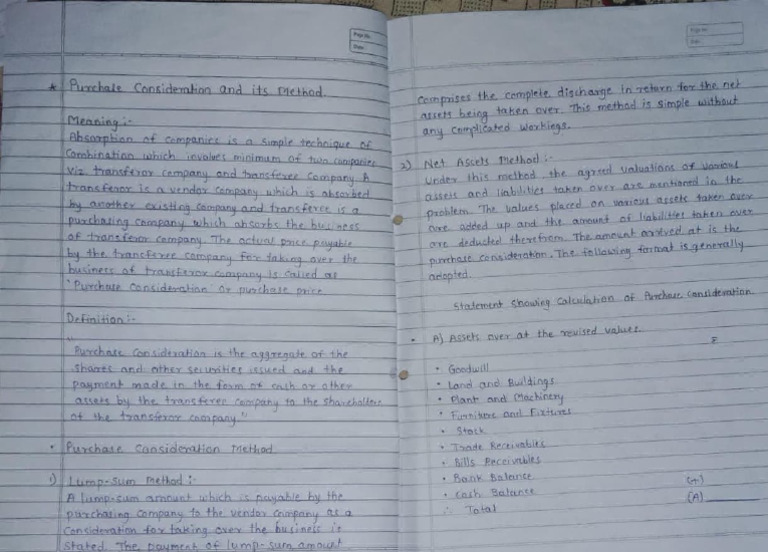 Page No.
Date
* Purchase Consideration and its Method.
Meaning :-
Absorption of companies is a simple technique of
Combination which involves minimum of two companies
viz transferor company and transferee Company. A
transferor is a vendor company which is absorbed
by another existing company and transferee is a
purchasing company which absorbs the business
of transferor company. The actual price payable
by the transferee company for taking over the
business of transferor company is called as
'Purchase Consideration' or purchase price
Definition :-
"
Purchase Consideration is the aggregate of the
shares and other securities issued and the
payment made in the form of cash or other
assets by the transferee company to the shareholders
of the transferor company."
• Purchase Consideration Method
1) Lump-Sum Method :-
A lump-sum amount which is payable by the
purchasing company to the vendor company as a
Consideration for taking over the business is
stated. The payment of lump-sum amount
Page No.
Date
comprises the complete discharge in return for the net
assets being taken over. This method is simple without
any complicated workings.
2) Net Assets Method :-
Under this method, the agreed valuations of various
assets and liabilities taken over are mentioned in the
problem. The values placed on various assets taken over
are added up and the amount of liabilities taken over
are deducted therefrom. The amount arrived at is the
purchase consideration. The following format is generally
adopted.
Statement showing Calculation of Purchase Consideration.
• A) Assets over at the revised values.
• Goodwill
• Land and Buildings
• Plant and Machinery
• Furniture and Fixtures
• Stock
• Trade Receivables
• Bills Receivables
• Bank Balance
• Cash Balance (+)
∴ Total (A)